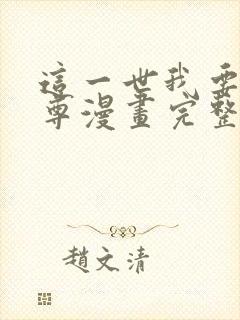 這一世我要
尊漫畫完整
趙文清